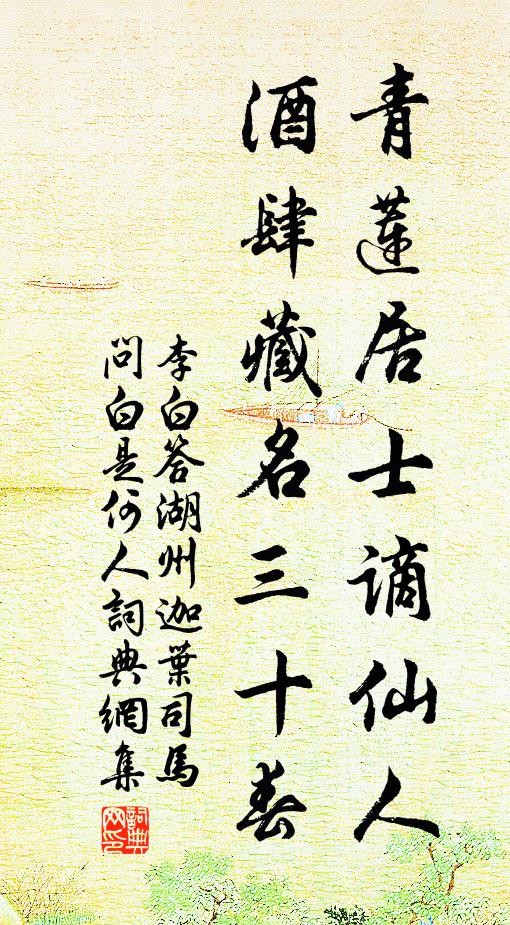 青蓮居士謫仙人
酒肆藏名三十春
李白答湖州迦葉司馬
問白是何人詞典網集
詞典网印